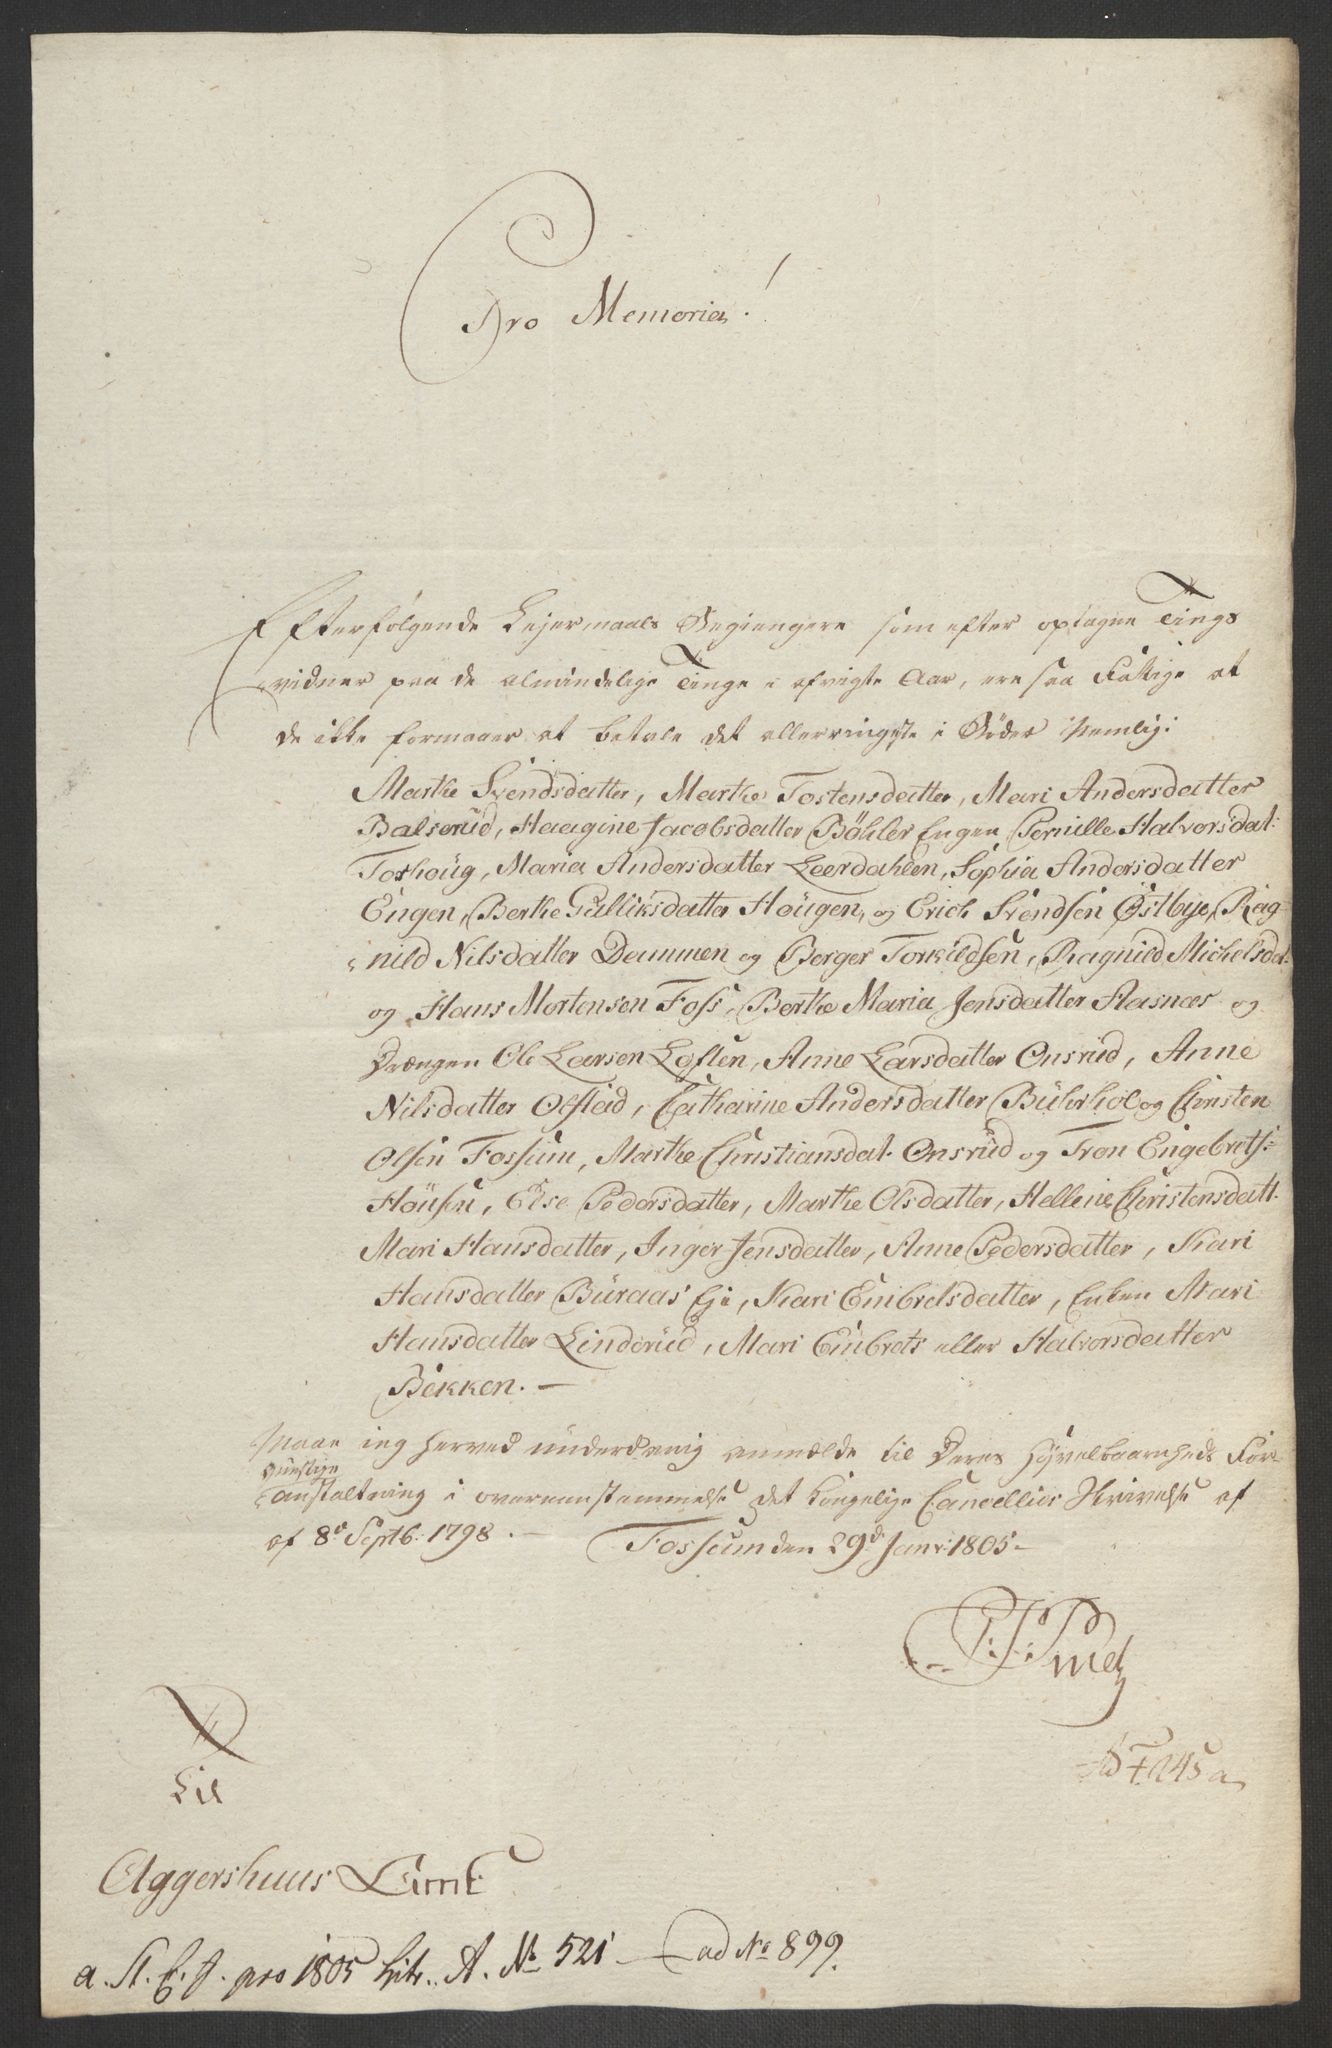 Pro Memoria!
Efterfølgende Lejermaals Begiengere som efter optagne Tings
vidner paa de almindelige Tinge i afvigte Aar, ere saa Fattige at
de ikke formaaer at betale det allerringeste i Bøder nemlig:
Marthe Svendsdatter, Marthe Tostensdatter, Mari Andersdatter
Balserud, Haagine Jacobsdatter Bøhler Engen Pernille Halvorsdat:
Toshoug, Maria Andersdatter Leerdahlen, Sophia Andersdatter
Engen, Berthe Gulliksdatter Hougen, og Erich Svendsen Østbye, Rag-
nild Nilsdatter Dammen og Berger Torkildsen, Ragnild Michelsdat:
og Hans Mortensen Foss, Berthe Maria Jensdatter Aasnæs og
Drængen Ole Larsen Løften, Anne Larsdatter Onsrud, Anne
Nilsdatter Ofstad, Catharine Andersdatter Buhrhol og Christen
Olsen Fossum, Marthe Christiansdat. Onsrud og Tron Engebrets:
Housen, Else Pedersdatter, Marthe Olsdatter, Hellene Christensdatt.
Mari Hansdatter, Inger Jensdatter, Anne Pedersdatter, Kari
Hansdatter Buraas Eje, Kari Embretsdatter, Enken Mari
Hansdatter Linderud, Mari Embrets eller Halvorsdatter
Bekken. —
Maae ieg herved underdanig anmælde til Deres Høyvelbaarnheds For-
gunstige
anstaltning i overeenstemmelse det kongelige Cancellies Skrivelse af
af 8d Septb: 1798. — Fossum den 29d Janr: 1805 —
Til
Ad F. 245 a
Aggershuus Amt
a. St. C. J. pro 1805 Litr. A. No 521 — ad No 899.